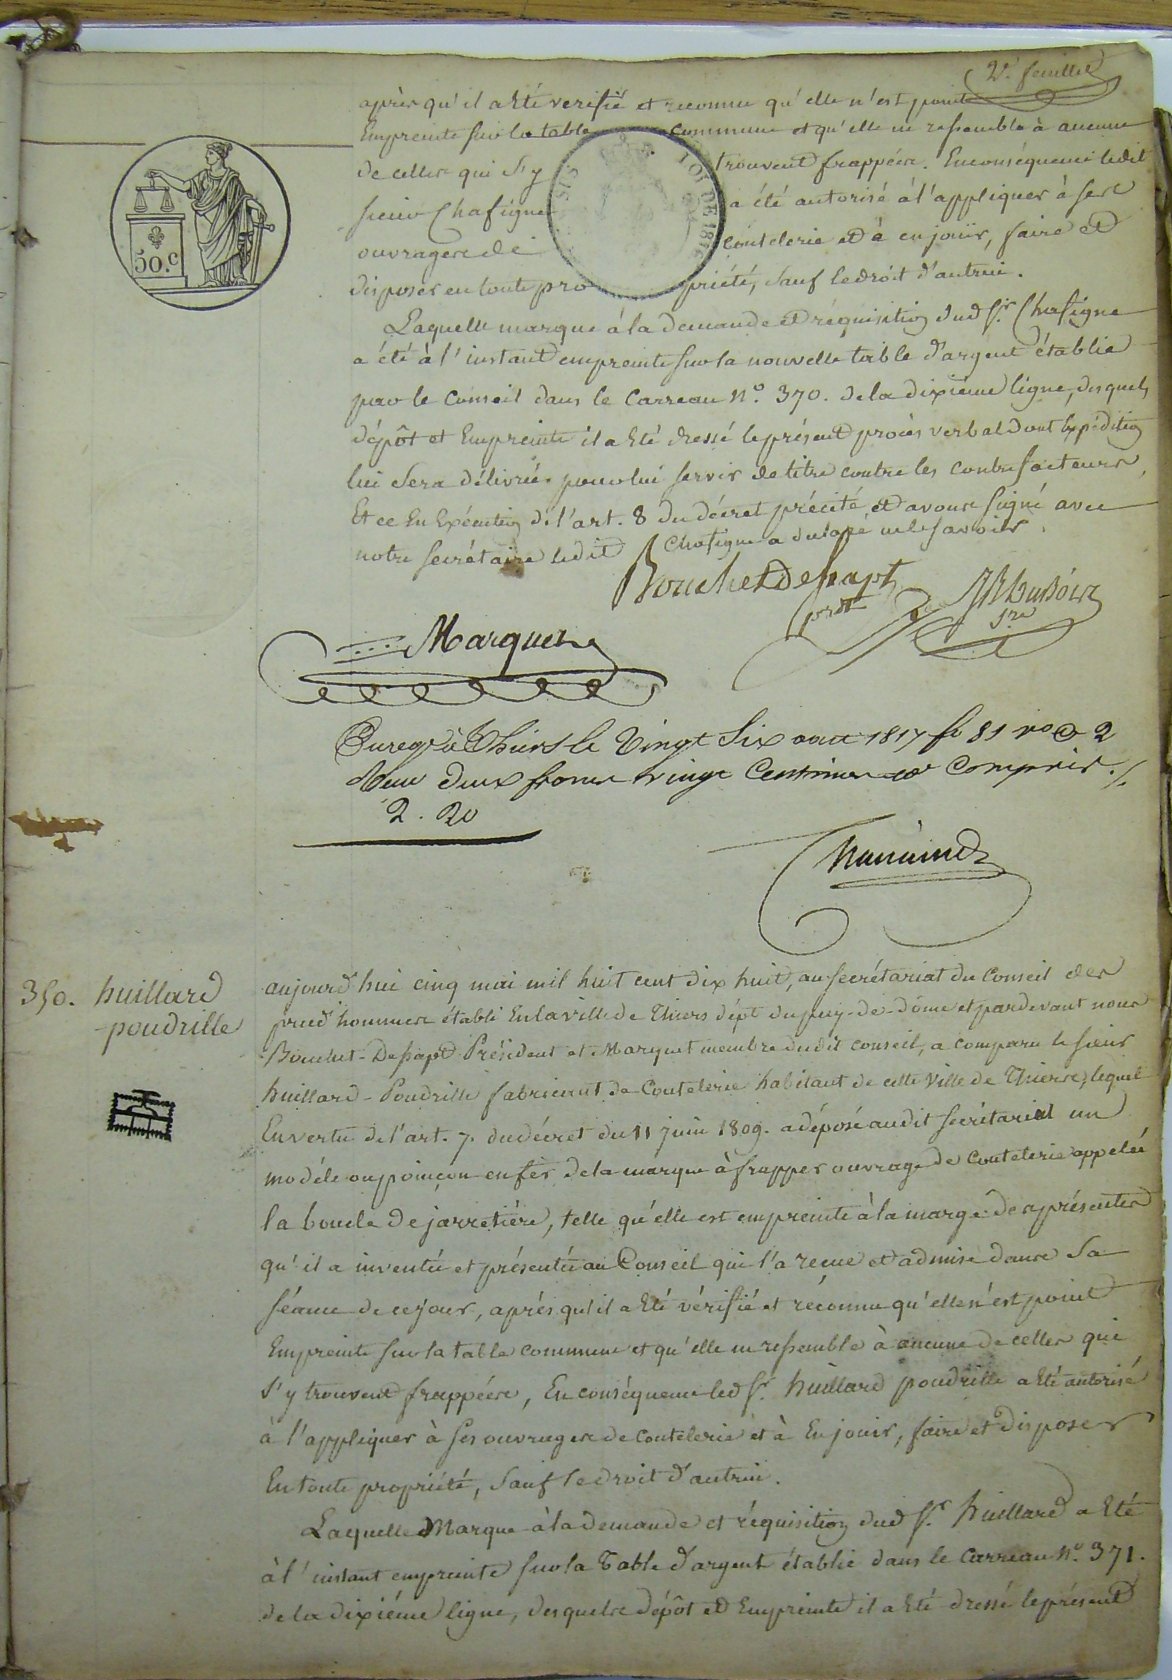 2e. feuillet
après qu'il a été verifié et reconnu qu'elle n'est point
Empreinte sur la table commune et qu'elle ne ressemble à aucune
de celles qui s'y trouvent frappées. En conséquence ledit
sieur Chafigne a été autorisé à l'appliquer à ses
ouvrages de coutelerie et à en jouir, faire et
disposer en toute propriété, sauf le droit d'autrui.
Laquelle marque à la demande et réquisition dud Sr. Chafigne
a été à l'instant empreinte sur la nouvelle table d'argent établie
par le Conseil dans le Carreau No. 370. de la dixième ligne, desquels
dépôt et Empreinte il a été dressé le présent procès verbal dont Expédition
lui sera délivrée pour lui servir de titre contre les contrefacteurs,
Et ce En Exécution de l'art. 8 du décret précité, et avons signé avec
notre secrétaire ledit Chafigne a déclaré ne le savoir.
Bouchet Desapt
prdt
Sre
Marquet
50.c
Enregé à Thiers le Vingt Six aout 1817 fo 81 Vo C 2
Reçu deux francs vingt Centimes Compris
2. 20
350. huillard
poudrille
aujourd'hui cinq mai mil huit cent dix huit, au secrétariat du Conseil des
prud'hommes établi En la ville de Thiers dépt. du puy-de-dôme et pardevant nous
Bouchet-Desapt Président et Marquet membre dudit conseil, a comparu le sieur
huillard-Poudrille fabricant de Coutelerie habitant de cette Ville de Thiers, lequel
En vertu de l'art. 7. du décret du 11 juin 1809. a déposé audit secrétariat un
modéle ou poinçon en fer de la marque à frapper ouvrage de Coutelerie appelée
la boucle de jarretiére, telle qu'elle est empreinte à la marge des présentes
qu'il a inventée et présentée au Conseil qui l'a reçue et admise dans sa
séance de ce jour, après qu'il a été vérifié et réconnu qu'elle n'est point
Empreinte sur la table commune et qu'elle ne ressemble à aucune de celles qui
s'y trouvent frappées, En conséquence led Sr. huillard poudrille a été autorisé
à l'appliquer à ses ouvrages de coutelerie et à En jouir, faire et disposer
En toute propriété, sauf le droit d'autrui.
Laquelle Marque à la demande et réquisition dud Sr. huillard a été
à l'instant empreinte sur la Table d'argent établie dans le Carreau No. 371.
de la dixiéme ligne, desquels dépôt et Empreinte il a été dressé le présent